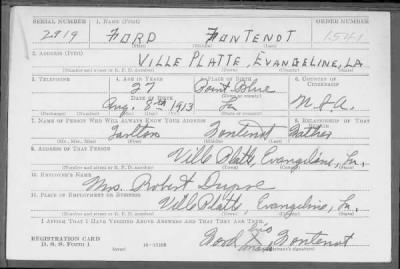 SERIAL NUMBER 1. NAME (Print) ORDER NUMBER
2919 FORD FONTENOT 1541
(First) (Middle) (Last)
2. ADDRESS (Print)
VILLE PLATTE, EVANGELINE, LA
(Number and street or R. F. D. number) (Town) (County) (State)
3. TELEPHONE 4. AGE IN YEARS 5. PLACE OF BIRTH 6. COUNTRY OF CITIZENSHIP
27 Point Blue
DATE OF BIRTH (Town or county)
Aug. 8th 1913 La U.S.A.
(Exchange) (Number) (Mo.) (Day) (Yr.) (State or country)
7. NAME OF PERSON WHO WILL ALWAYS KNOW YOUR ADDRESS 8. RELATIONSHIP OF THAT PERSON
Fontenot
(Mr., Mrs., Miss) (First) (Middle) (Last)
9. ADDRESS OF THAT PERSON
Ville Platte, Evangeline, La.
(Number and street or R. F. D. number) (Town) (County) (State)
10. EMPLOYER'S NAME
Mrs. Robert Dupre
11. PLACE OF EMPLOYMENT OR BUSINESS
Ville Platte, Evangeline, La.
(Number and street or R. F. D. number) (Town) (County) (State)
I AFFIRM THAT I HAVE VERIFIED ABOVE ANSWERS AND THAT THEY ARE TRUE.
his
REGISTRATION CARD Ford Fontenot
D. S. S. Form 1 16—17105 mark